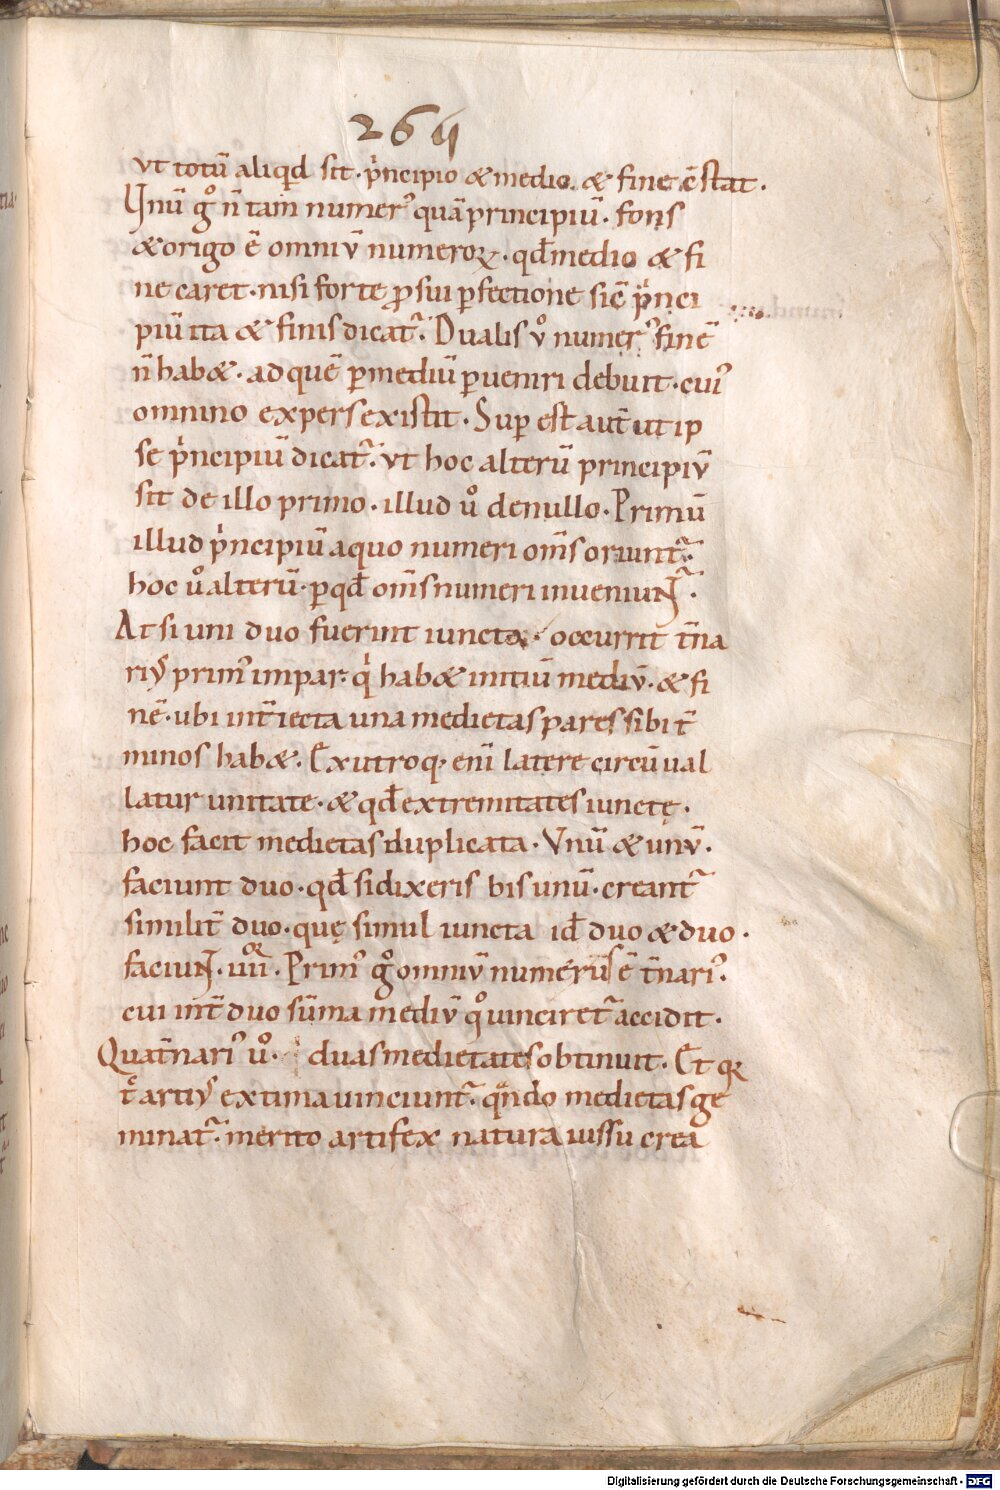 264
vt totū aliqd sit · pͥncipio & medio · & fine c̄stat ·
Vnū gͦ n̄ tam numerꝰ quā principiū · fons
& origo ē omniv̄ numeroꝝ · qđ medio & fi
ne caret · nisi forte ꝓ sui ꝑfectione sic̄ pͥnci
piū ita & finis dicat᷑ · Dualis v̊ numerꝰ finē
n̄ hab& · ad quē ꝑ mediū ꝑueniri debuit · cuiꝰ
omnino expers existit · Suꝑ est aut̄ ut ip
se pͥncipiū dicat᷑ · vt hoc alterū principiv̄
sit de illo primo · illud ů de nullo · Primū
illud pͥncipiū a quo numeri om̄s oriunt᷑ ·
hoc ů alterū · ꝑ qđ om̄s numeri inueniunt᷑ ·
At si uni duo fuerint iuncta · occurrit t̄na
riꝰ primꝰ impar · qͥ hab& initiū mediv̄ · & fi
nē · ubi int̄iecta una medietas pares sibi t̄
minos hab& · Ex utroq · eni latere circū ual
latur unitate · & qđ extremitates iunctę ·
hoc facit medietas duplicata · Vnū & unv̄ ·
faciunt duo · qđ si dixeris bis unū · creant᷑
similit̄ duo · quę simul iuncta id̄ duo & duo ·
faciunt · iiiior · Primꝰ gͦ omniv̄ numerus ē t̄nariꝰ ·
cui int̄ duo sūma mediv̄ qͦ uinciret᷑ accidit ·
Quat̄nariꝰ ů · duas medietates obtinuit · Et qꝛ
t̊artiꝰ extima uinciunt᷑ · qͣndo medietas ge
minat᷑ · merito artifex natura iussu crea
Digitalisierung gefördert durch die Deutsche Forschungsgemeinschaft - DFG